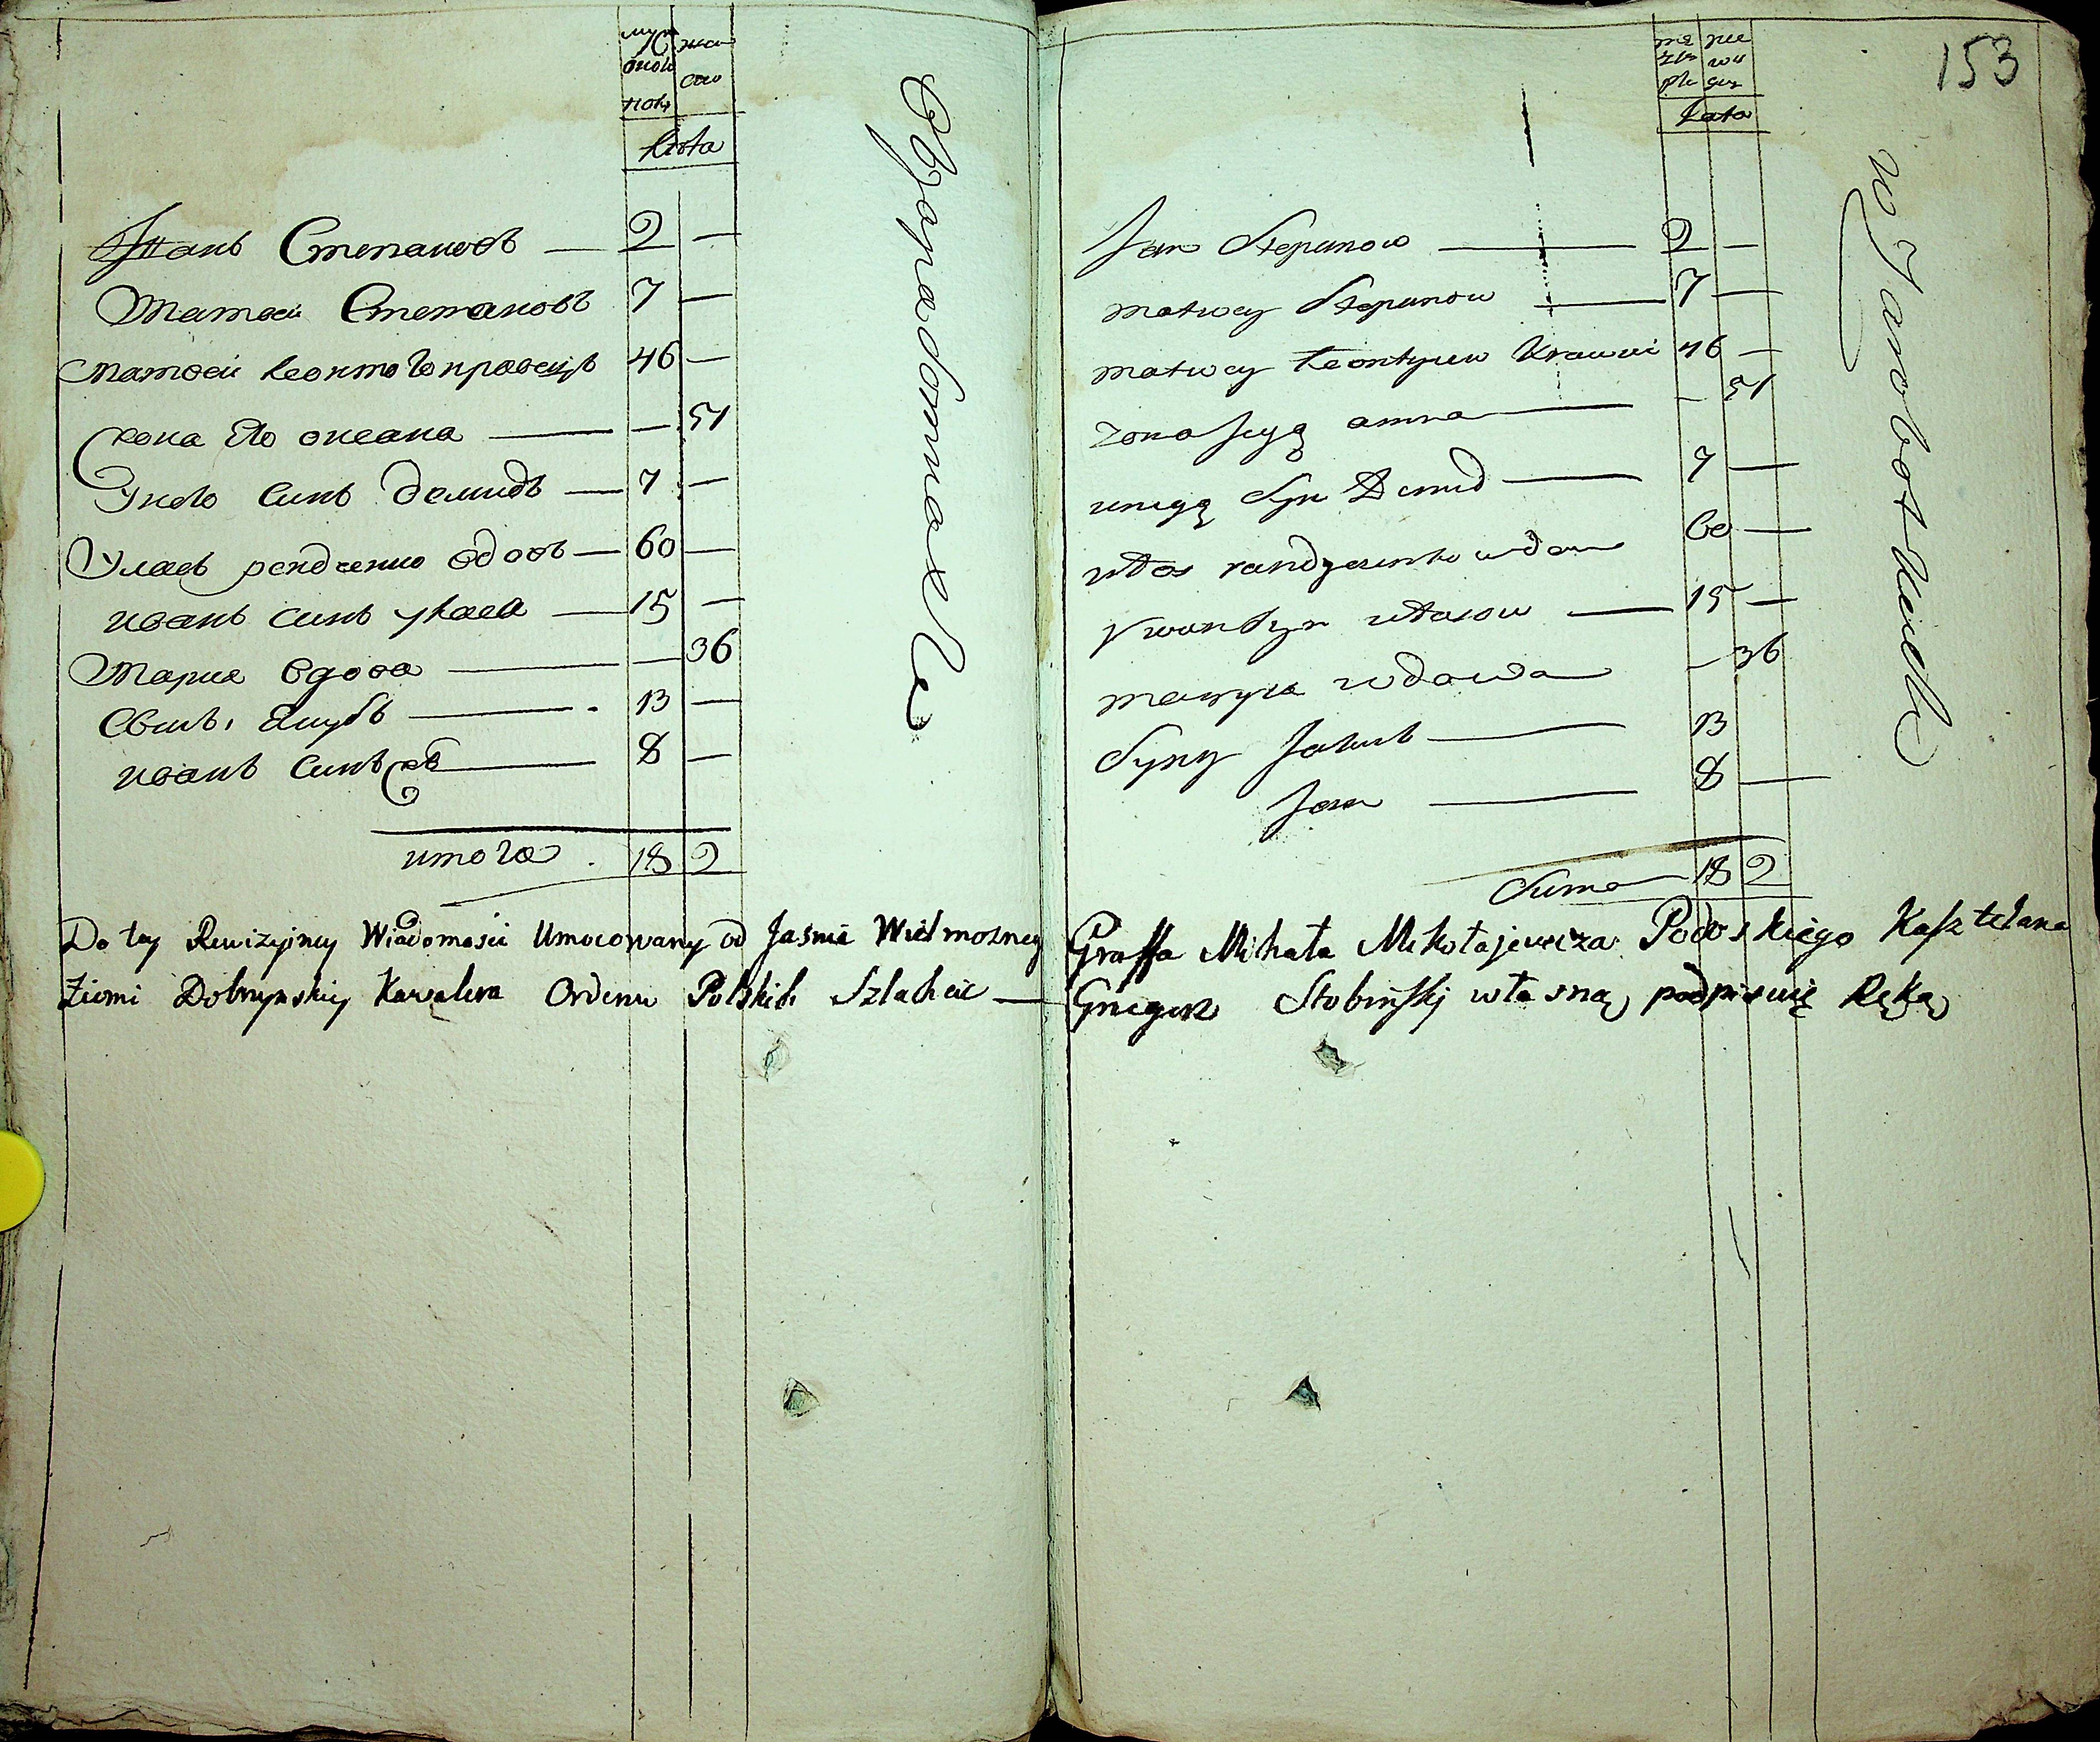 муж жен
ска
пола
Лѣта
Иванъ Степановъ — 2 —
Матвей Степановъ 7 —
Матвей Леонтого кравецъ 46 —
жона Его — — 51
У него Синъ Демидъ — 7 —
Уласъ рендченко вдовъ — 60 —
иванъ синъ уласа — 15 —
Мария вдова — — 36
Якубъ — 13 —
иванъ Синъ — 8 —
итого 18 2
153
Lata
Jan Stepanow — 2 —
Matwey Stepanow — 7 —
Matwey Leontyiew Krawiec 46 —
Zona Jego anna — — 51
u niego Syn Demid — 7 —
Własrandzenko wdow 60 —
Iwan Syn Własow — 15 —
Maryia wdowa — 36
Syny Jakub — 13
Jan — 8 —
Suma 18 2
Do tey Rewizyiney Wiadomości Umocowany od Jaśnie Wielmożnego Graffa Mihała Mikołajewicza Podoskiego Kasztelana
Ziemi Dobrzynskiey Kawalera Orderu Polskich Szlachcic — Gregorz Słobinskj własną podpisuię Ręką